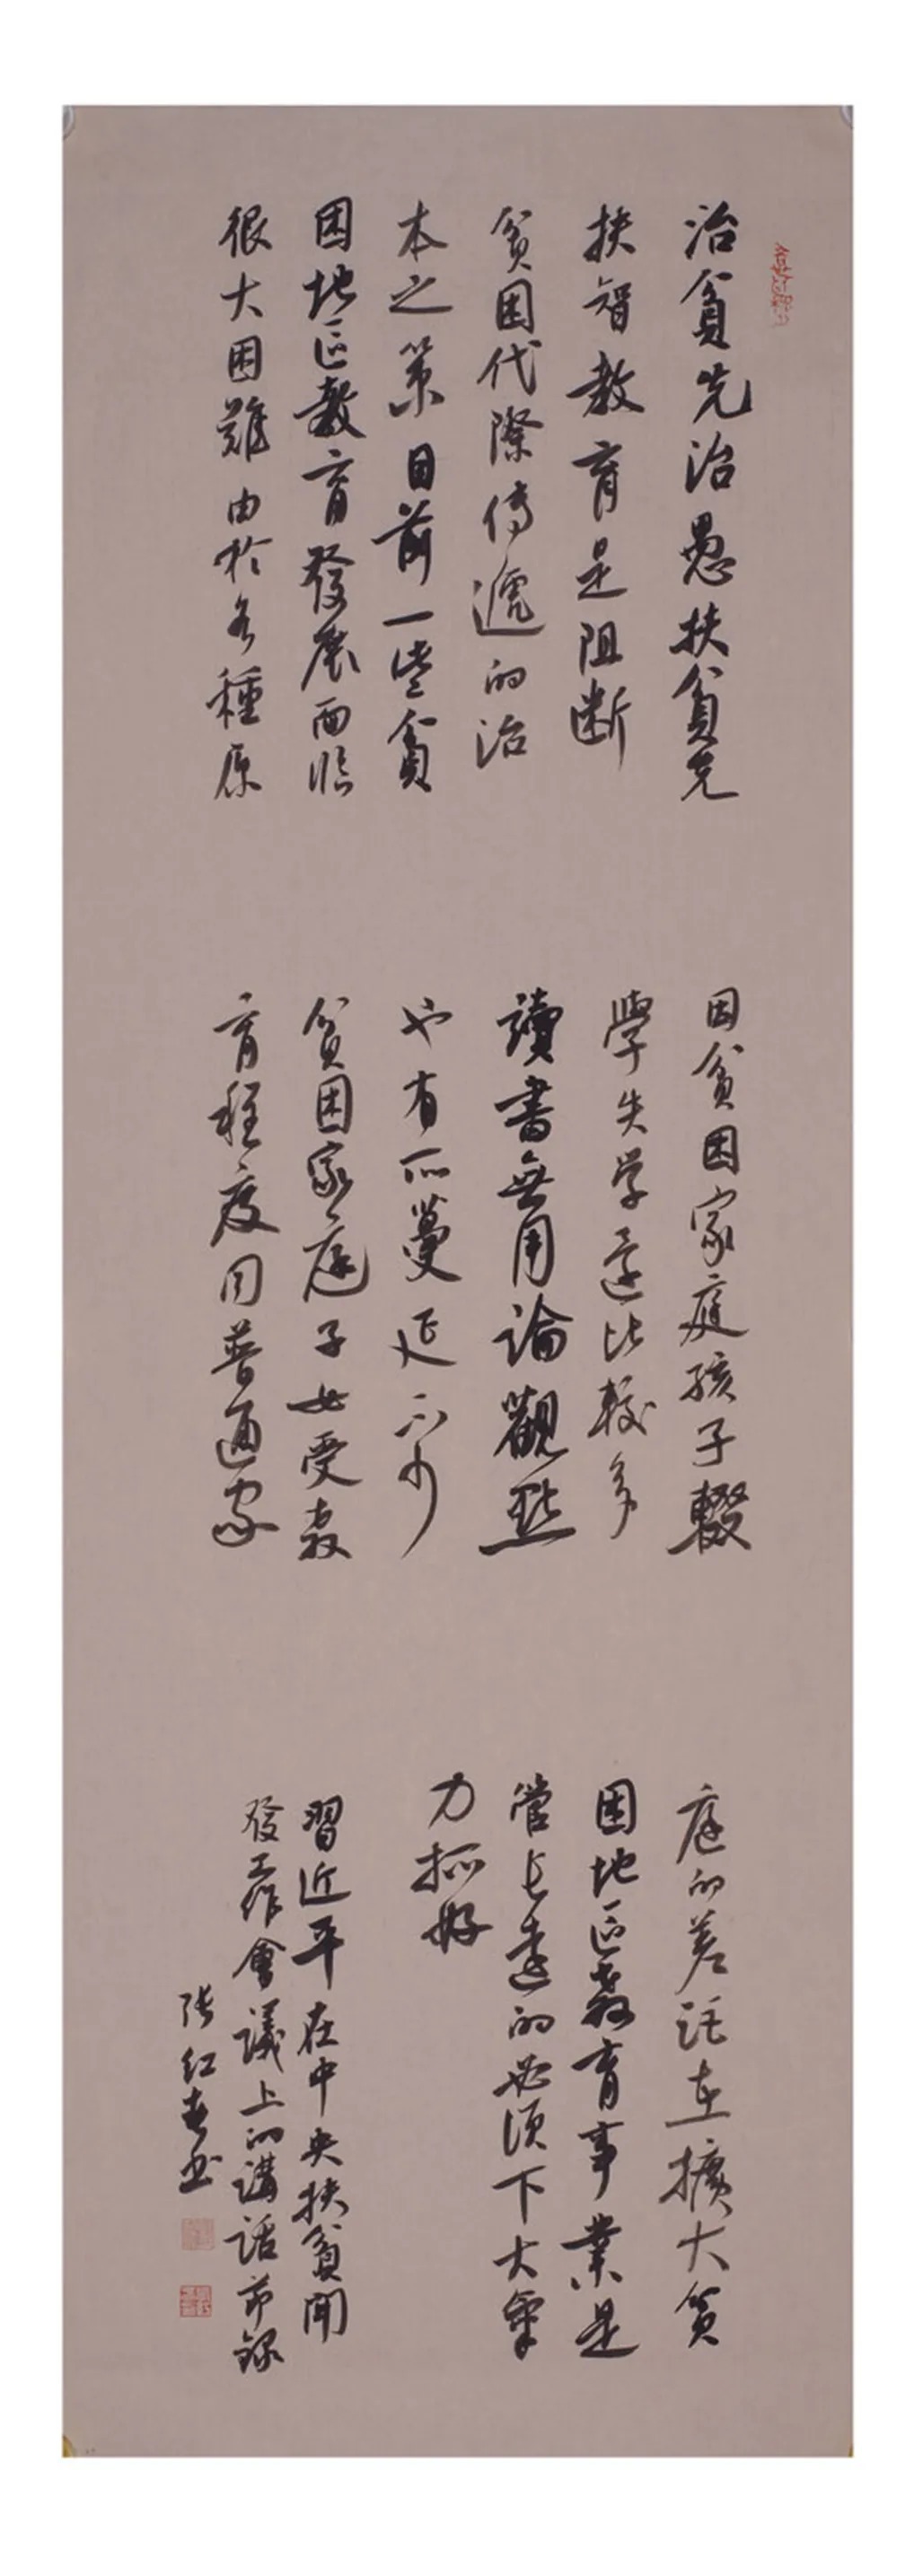 治貧先治愚扶貧先
扶智教育是阻断
貧困代際傳遞的治
本之策目前一些貧
困地區教育發展面臨
很大困難由於各種原
因貧困家庭孩子輟
學失学還比較多
讀書無用論觀點
也有所蔓延不少
貧困家庭子女受教
育程度同普通家
庭的差距在擴大貧
困地區教育事業是
管長遠的必須下大氣
力抓好
習近平在中央扶貧開
發工作會議上的講話節錄
張红春书